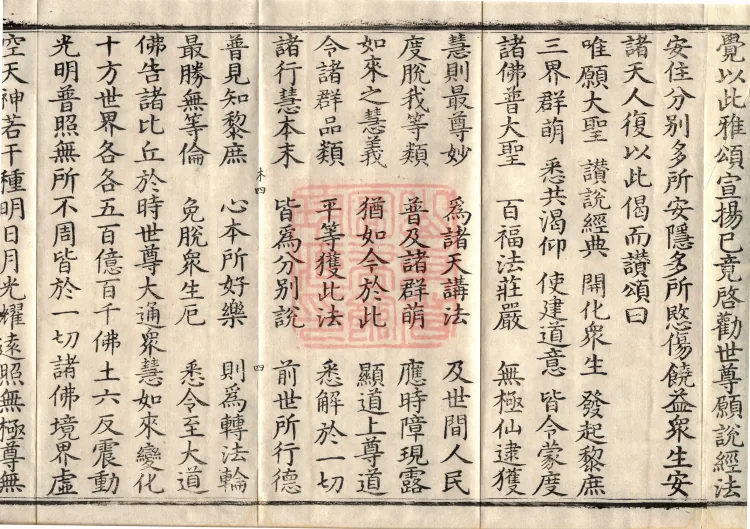 覺以此雅頌宣揚已竟啓勸世尊願說經法
安住分別多所安隱多所愍傷饒益衆生安
諸天人復以此偈而讃頌曰
唯願大聖 讃說經典 開化衆生 發起黎庶
三界群萌 悉共渴仰 使建道意 皆令蒙度
諸佛普大聖 百福法莊嚴 無極仙逮獲
慧則最尊妙 爲諸天講法 及世間人民
度脫我等類 普及諸群萌 應時障現露
如來之慧義 猶如今於此 顯道上尊道
令諸群品類 平等獲此法 悉解於一切
諸行慧本末 皆爲分別說 前世所行德
普見知黎庶 心本所好樂 則爲轉法輪
最勝無等倫 免脫衆生厄 悉令至大道
佛告諸比丘於時世尊大通衆慧如來變化
十方世界各各五百億百千佛土六反震動
光明普照無所不周皆於一切諸佛境界虛
空天神若干種明日月光耀遠照無極尊無